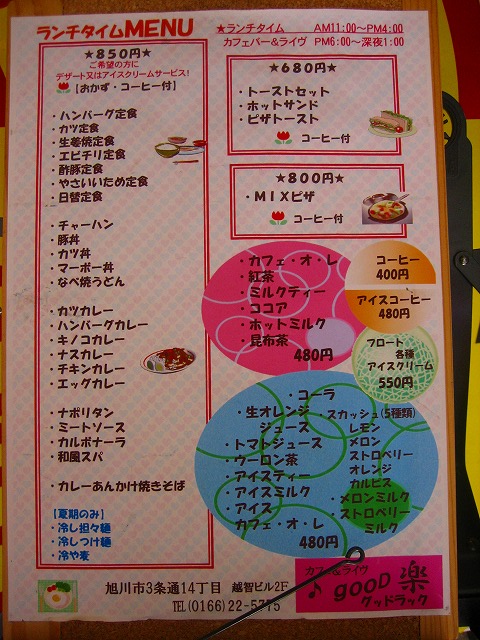 ランチタイムMENU
★ランチタイム AM11:00〜PM4:00
カフェバー&ライヴ PM6:00〜深夜1:00
★850円★
ご希望の方に
デザート又はアイスクリームサービス!
【おかず・コーヒー付】
・ハンバーグ定食
・カツ定食
・生姜焼定食
・エビチリ定食
・酢豚定食
・やさいいため定食
・日替定食
・チャーハン
・豚丼
・カツ丼
・マーボー丼
・なべ焼うどん
・カツカレー
・ハンバーグカレー
・キノコカレー
・ナスカレー
・チキンカレー
・エッグカレー
・ナポリタン
・ミートソース
・カルボナーラ
・和風スパ
・カレーあんかけ焼きそば
【夏期のみ】
・冷し担々麺
・冷しつけ麺
・冷や麦
★680円★
・トーストセット
・ホットサンド
・ピザトースト
コーヒー付
★800円★
・MIXピザ
コーヒー付
・カフェ・オ・レ
・紅茶
・ミルクティー
・ココア
・ホットミルク
・昆布茶
480円
コーヒー
400円
アイスコーヒー
480円
フロート
各種
アイスクリーム
550円
・コーラ
・生オレンジ
ジュース
・トマトジュース
・ウーロン茶
・アイスティー
・アイスミルク
・アイス
カフェ・オ・レ
・スカッシュ(5種類)
レモン
メロン
ストロベリー
オレンジ
カルピス
・メロンミルク
・ストロベリー
ミルク
480円
旭川市3条通14丁目 越智ビル2F
TEL(0166)22-5775
カフェ&ライヴ
♪ gooD 楽
グッドラック